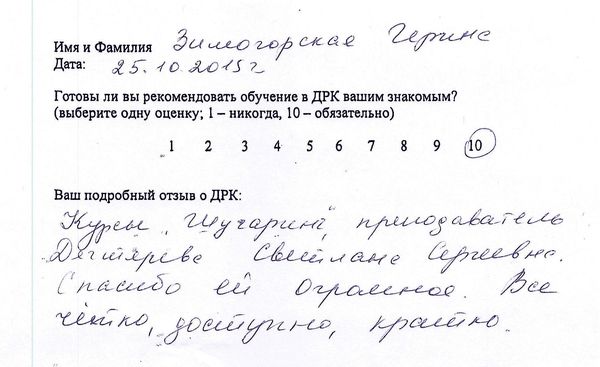 Имя и Фамилия Зимогорская Герине
Дата: 25.10.2015г
Готовы ли вы рекомендовать обучение в ДРК вашим знакомым?
(выберите одну оценку; 1 – никогда, 10 – обязательно)
1 2 3 4 5 6 7 8 9 10
Ваш подробный отзыв о ДРК:
Курсы преподаватель
Дегтярева Светлана Сергеевна.
Спасибо ей огромное. Все
чётко, доступно, кратко.